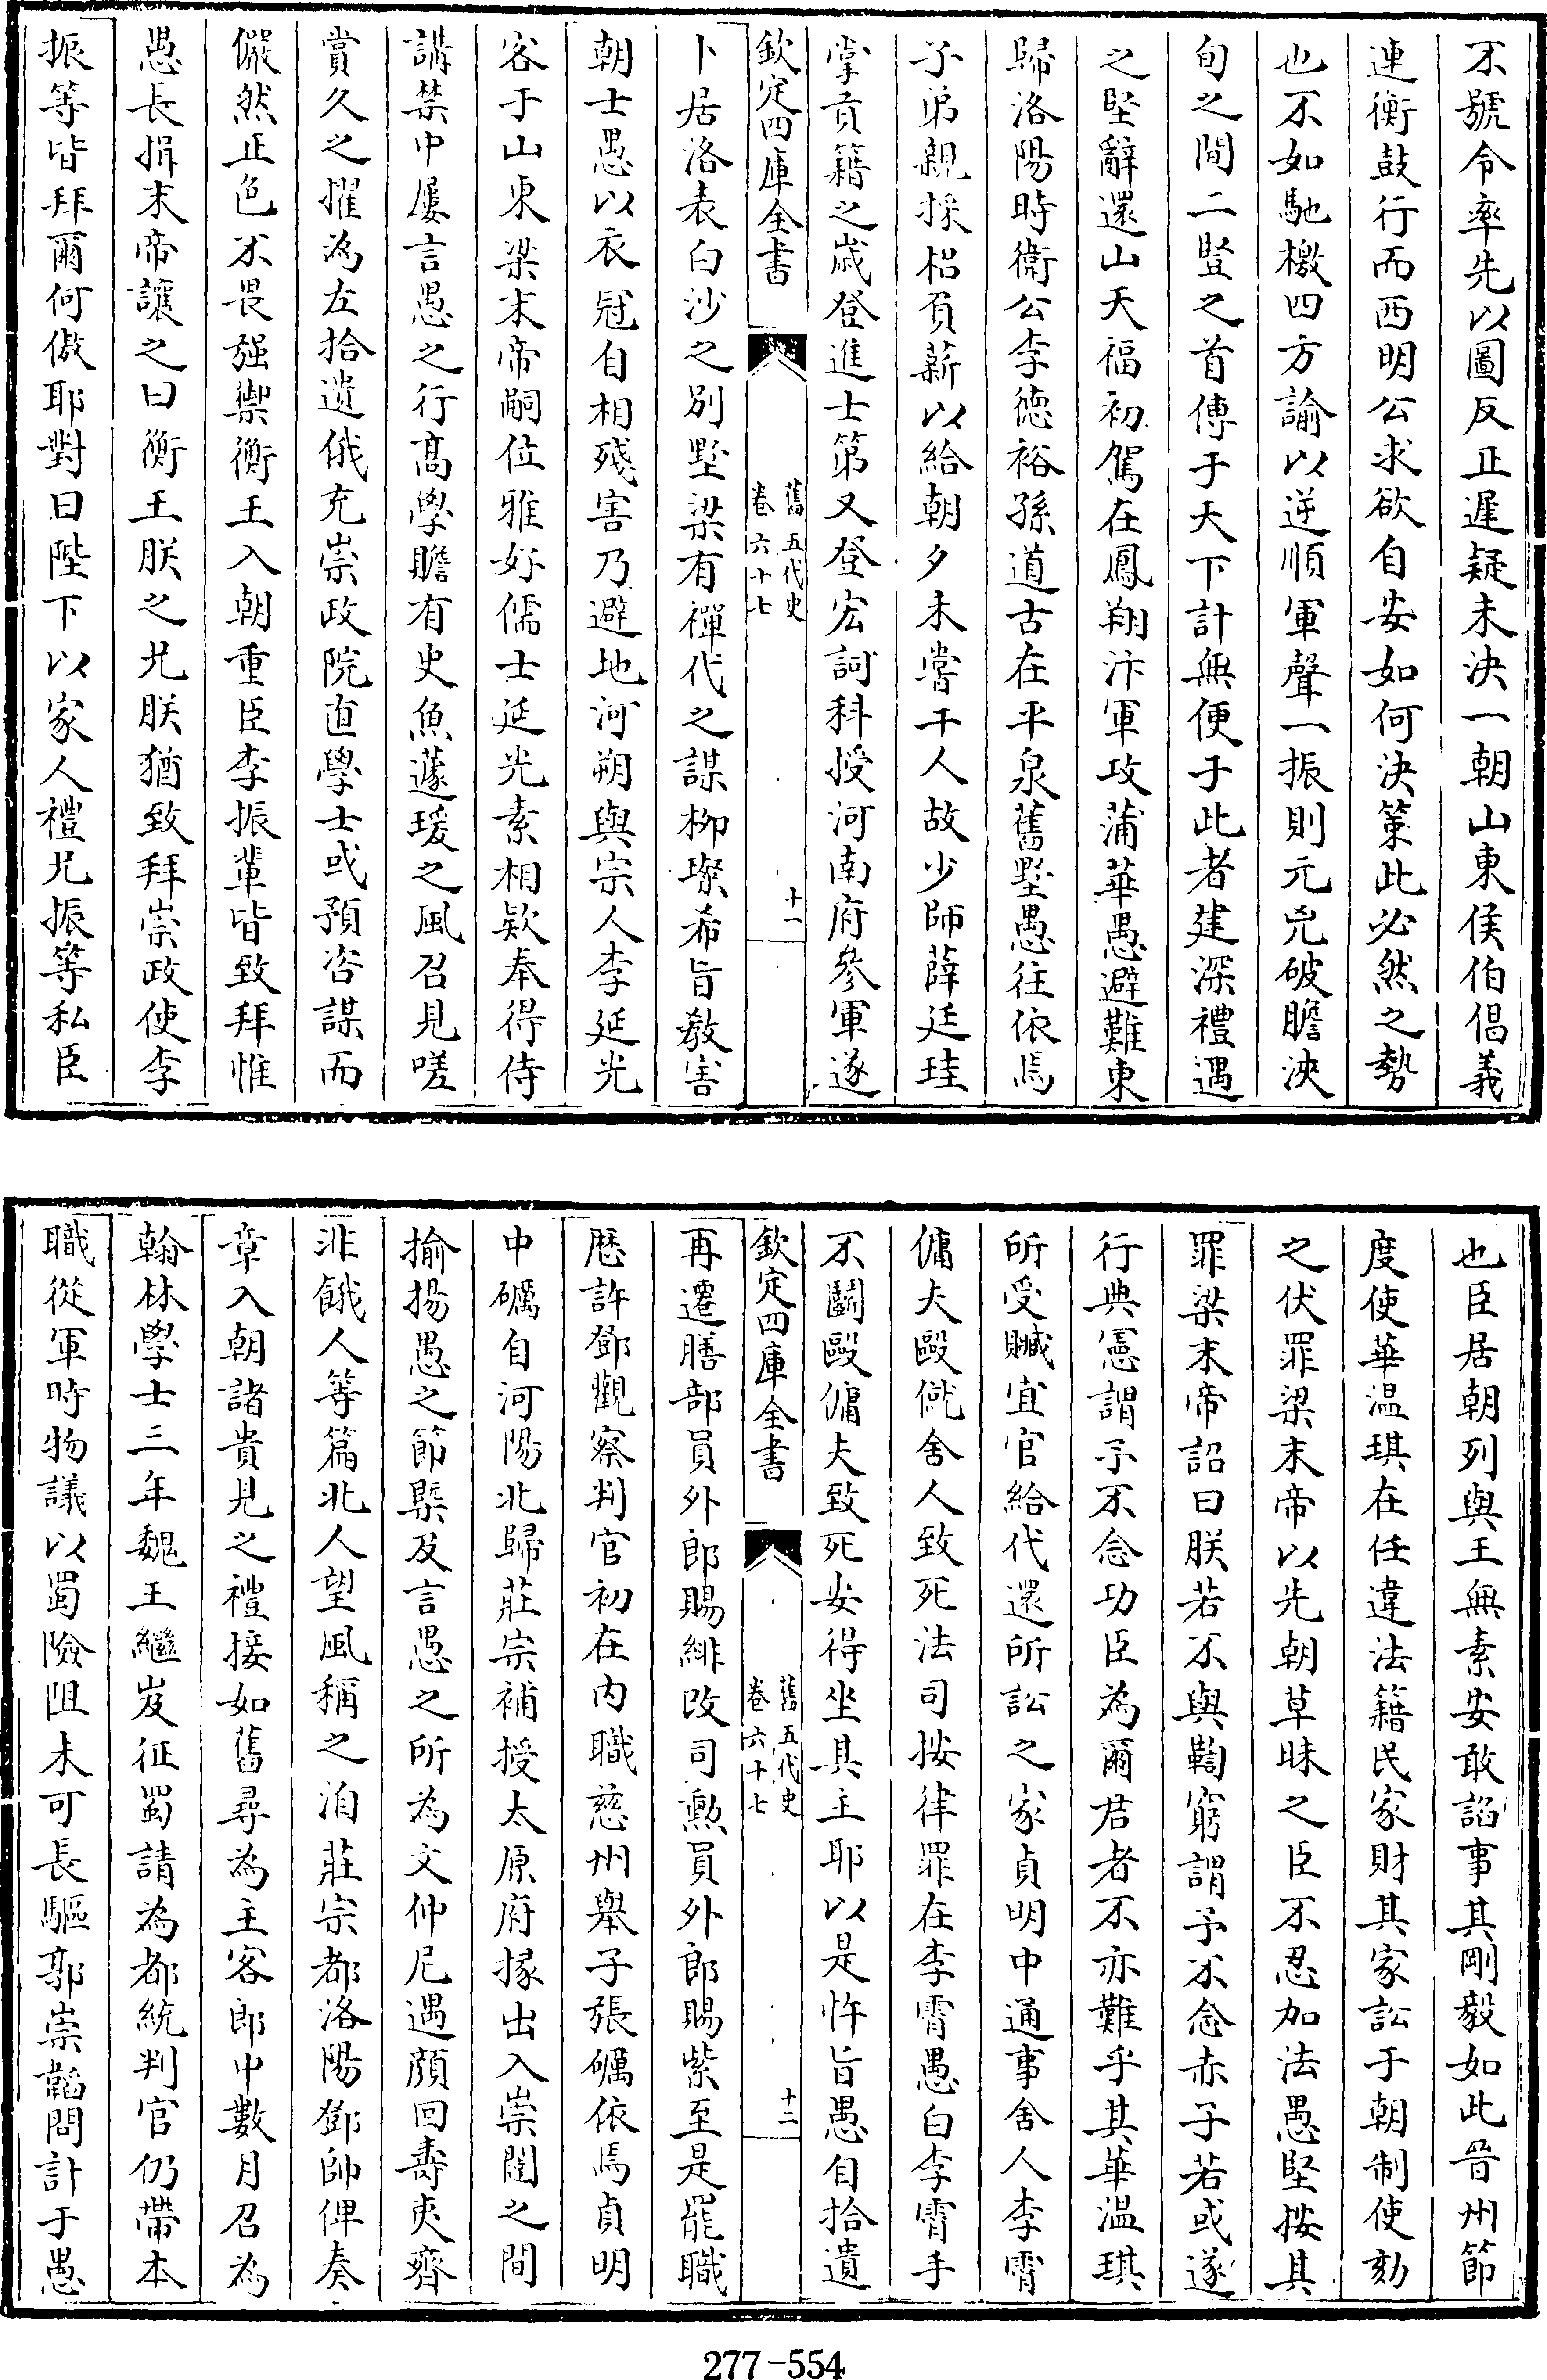 不號令率先以圖反正遲疑未決一朝山東侯伯倡義
連衡鼓行而西明公求欲自安如何決策此必然之勢
也不如馳檄四方諭以逆順軍聲一振則元兇破膽浹
旬之間二豎之首傳于天下計無便于此者建深禮遇
之堅辭還山天福初駕在鳳翔汴軍攻蒲華愚避難東
歸洛陽時衛公李德裕孫道古在平泉舊墅愚往依焉
子弟親採梠負薪以給朝夕未嘗干人故少師薛廷珪
掌貢籍之歲登進士第又登宏詞科授河南府參軍遂
欽定四庫全書
舊五代史
卷六十七
十一
卜居洛表白沙之別墅梁有禪代之謀柳璨希旨教害
朝士愚以衣冠自相殘害乃避地河朔與宗人李延光
客于山東梁末帝嗣位雅好儒士延光素相欵奉得侍
講禁中屢言愚之行高學贍有史魚蘧瑗之風召見嗟
賞久之擢為左拾遺俄充崇政院直學士或預咨謀而
儼然正色不畏强禦衡王入朝重臣李振輩皆致拜惟
愚長揖末帝讓之曰衡王朕之兄朕猶致拜崇政使李
振等皆拜爾何傲耶對曰陛下以家人禮兄振等私臣
也臣居朝列與王無素安敢諂事其剛毅如此晉州節
度使華温琪在任違法籍民家財其家訟于朝制使劾
之伏罪梁末帝以先朝草昧之臣不忍加法愚堅按其
罪梁末帝詔曰朕若不與鞫窮謂予不念赤子若或遂
行典憲謂予不念功臣為爾君者不亦難乎其華温琪
所受贓宜官給代還所訟之家貞明中通事舍人李霄
傭夫毆僦舍人致死法司按律罪在李霄愚白李霄手
不鬬毆傭夫致死安得坐其主耶以是忤旨愚自拾遺
欽定四庫全書
舊五代史
卷六十七
十二
再遷膳部員外郎賜緋改司勲員外郎賜紫至是罷職
歷許鄧觀察判官初在内職慈州舉子張礪依焉貞明
中礪自河陽北歸莊宗補授太原府掾出入崇闥之間
揄揚愚之節槩及言愚之所為文仲尼遇顔回壽夷齊
非餓人等篇北人望風稱之洎莊宗都洛陽鄧帥俾奏
章入朝諸貴見之禮接如舊尋為主客郎中數月召為
翰林學士三年魏王繼岌征蜀請為都統判官仍帶本
職從軍時物議以蜀險阻未可長驅郭崇韜問計于愚
277-554